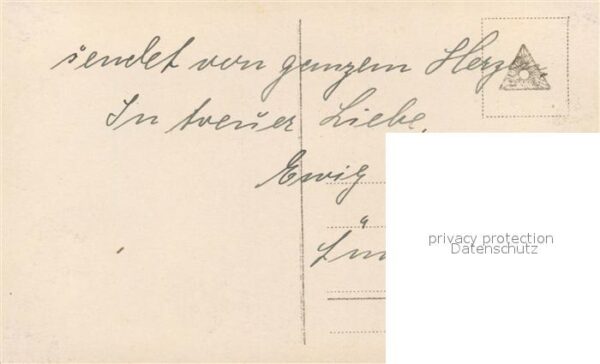 sendet von ganzem Herzen
In treuer Liebe.
Ewig
privacy protection
Datenschutz